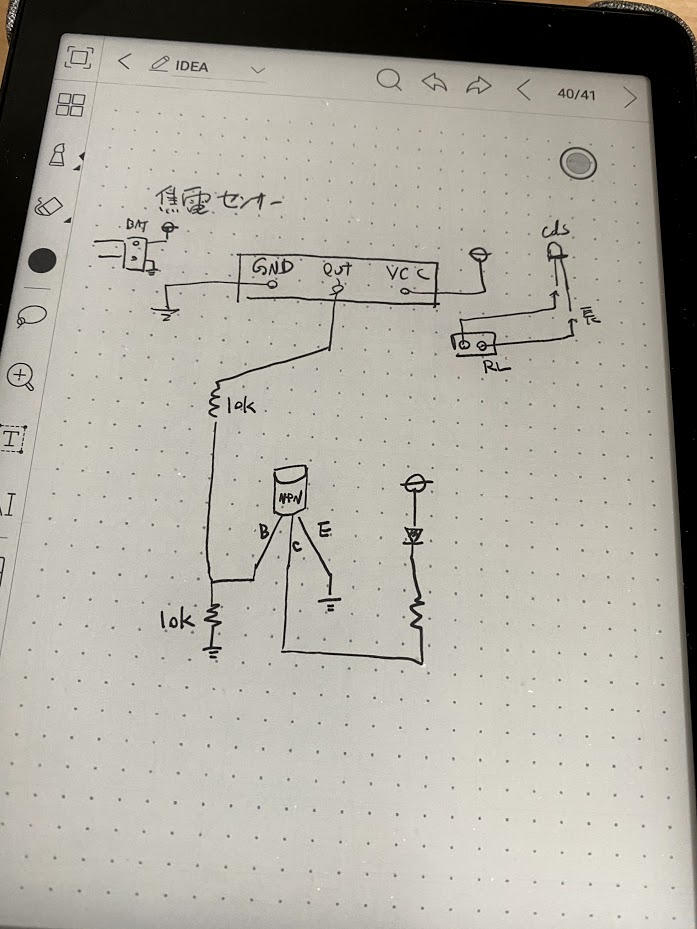 IDEA
40/41
焦電センサー
BAT
GND OUT VCC
cds
RL
10k
NPN
B C E
10k
T